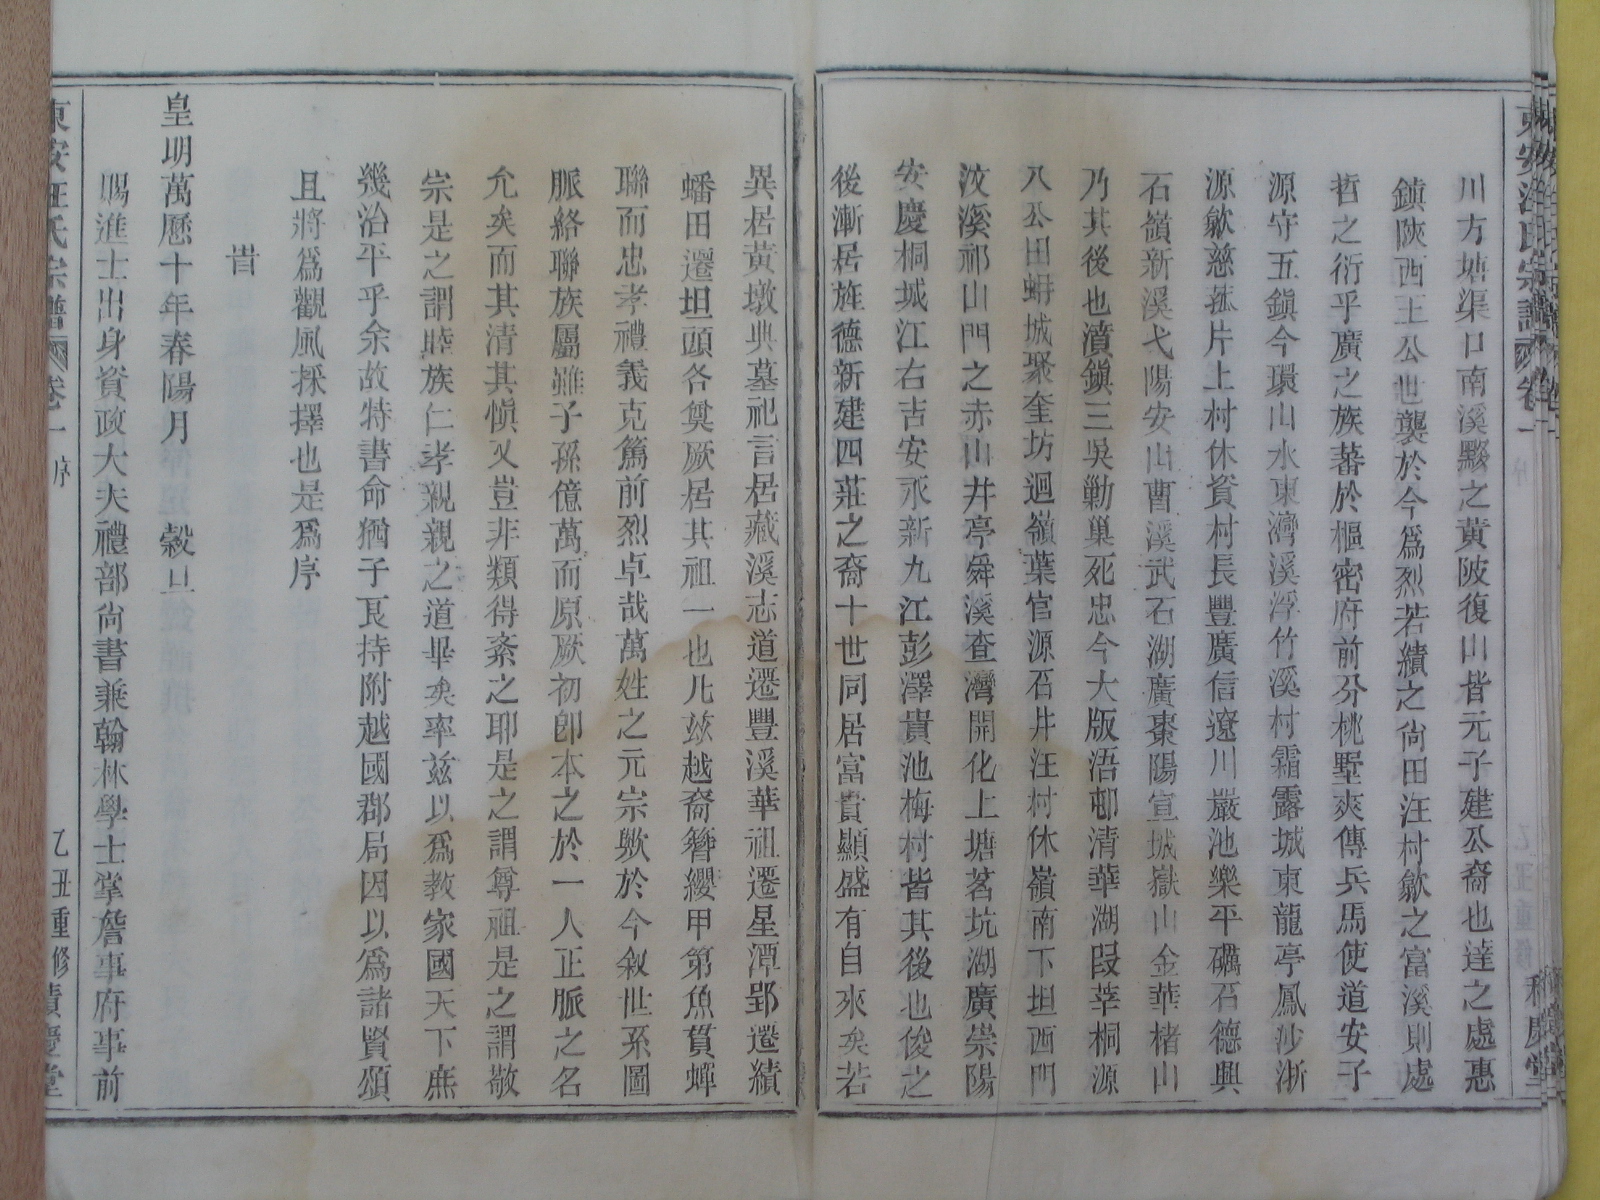 川方塘渠口南溪黟之黄陂復山皆元子建公裔也達之處惠
鎮陝西王公世襲於今爲烈若績之尙田汪村歙之富溪則處
哲之衍乎廣之族蕃於樞密府前分桃墅爽傳兵馬使道安子
源守五鎮今環山水東灣溪浮竹溪村霜露城東龍亭鳳沙浙
源歙慈菰片上村休資村長豐廣信遼川嚴池樂平礪石德興
石嶺新溪弋陽安山曹溪武石湖廣棗陽宣城嶽山金華楮山
乃其後也濆鎮三吳勦巢死忠今大版浯邨清華湖叚莘桐源
八公田蚺城聚奎坊迴嶺葉官源石井汪村休嶺南下坦西門
汶溪祁山門之赤山井亭舜溪查灣開化上塘茗坑湖廣崇陽
安慶桐城江右吉安永新九江彭澤貴池梅村皆其後也俊之
後漸居旌德新建四莊之裔十世同居富貴顯盛有自來矣若
異居黃墩典墓祀言居藏溪志道遷豐溪華祖遷星潭郢遷績
蟠田遷坦頭各奠厥居其祖一也凡玆越裔簪纓甲第魚貫蟬
聯而忠孝禮義克篤前烈卓哉萬姓之元宗歟於今敘世系圖
脈絡聯族屬雖子孫億萬而原厥初卽本之於一人正脈之名
允矣而其清其愼又豈非類得紊之耶是之謂尊祖是之謂敬
宗是之謂睦族仁孝親親之道畢矣率兹以爲教家國天下庶
幾治平乎余故特書命猶子艮持附越國郡局因以爲諸賢頌
且將爲觀風採擇也是爲序
旹
皇明萬曆十年春陽月 穀旦
賜進士出身資政大夫禮部尙書兼翰林學士掌詹事府事前
東安汪氏宗譜 卷一 序 乙丑重修 積慶堂